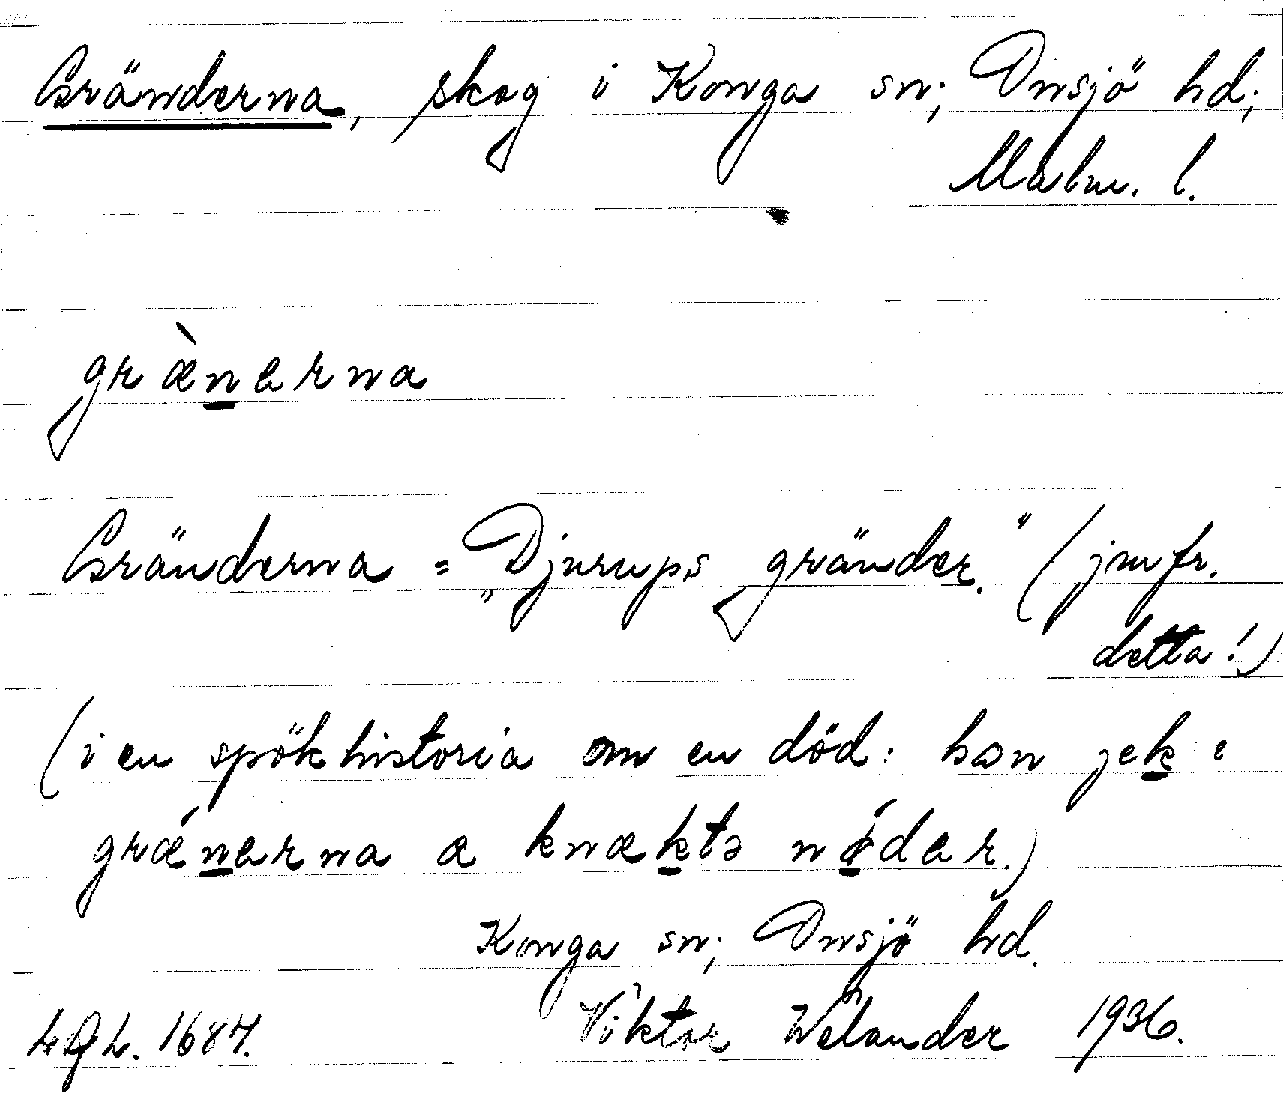 Gränderna, skog i Konga sn; Onsjö hd;
Malm. l.
græ̀nerna
Gränderna = „Djurups gränder.” (jmfr.
detta!)
(i en spökhistoria om en död: han jek i
grǽnerna a knæktə nǿdər.)
Konga sn; Onsjö hd.
1687. Viktor Welander 1936.